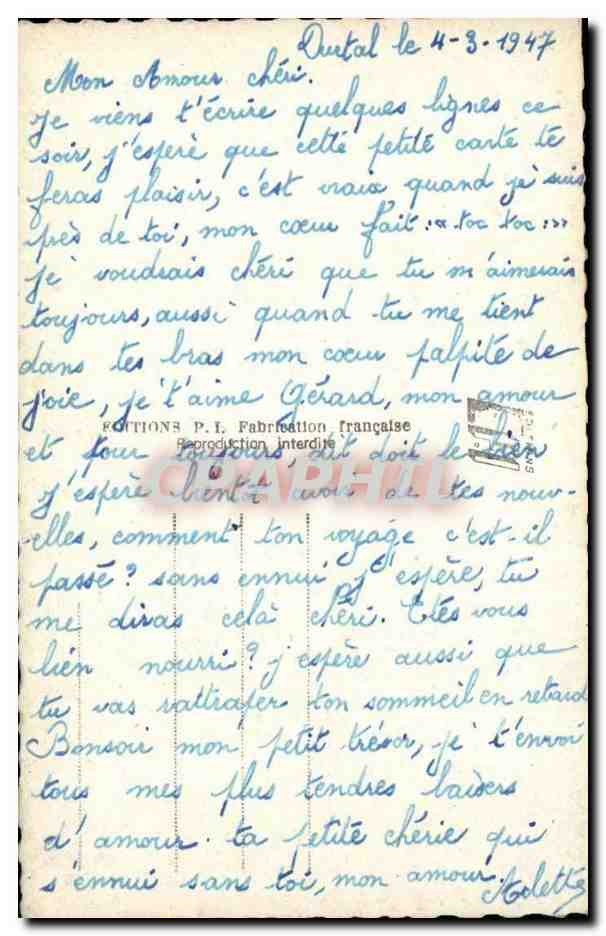 Durtal le 4-3-1947
Mon Amour chéri.
Je viens t'écrire quelques lignes ce
soir, j'espère que cette petite carte te
feras plaisir, c'est vraix quand je suis
près de toi, mon cœur fait : «toc toc :»
je voudrais chéri que tu m'aimerais
toujours, aussi quand tu me tient
dans tes bras mon cœur palpite de
joie, je t'aime Gérard, mon amour
EDITIONS P. I. Fabrication française
Reproduction interdite
et pour toujours, dit doit le bien
CPARAMA
j'espère bientôt avoir de tes nouv-
elles, comment ton voyage c'est-il
passé? sans ennui j'espère, tu
me diras celà chéri. Etes vous
bien nourri? j'espère aussi que
tu vas rattraper ton sommeil en retard
Bonsoir mon petit trésor, je t'envoi
tous mes plus tendres baisers
d'amour. ta petite chérie qui
s'ennui sans toi, mon amour.
Arlette